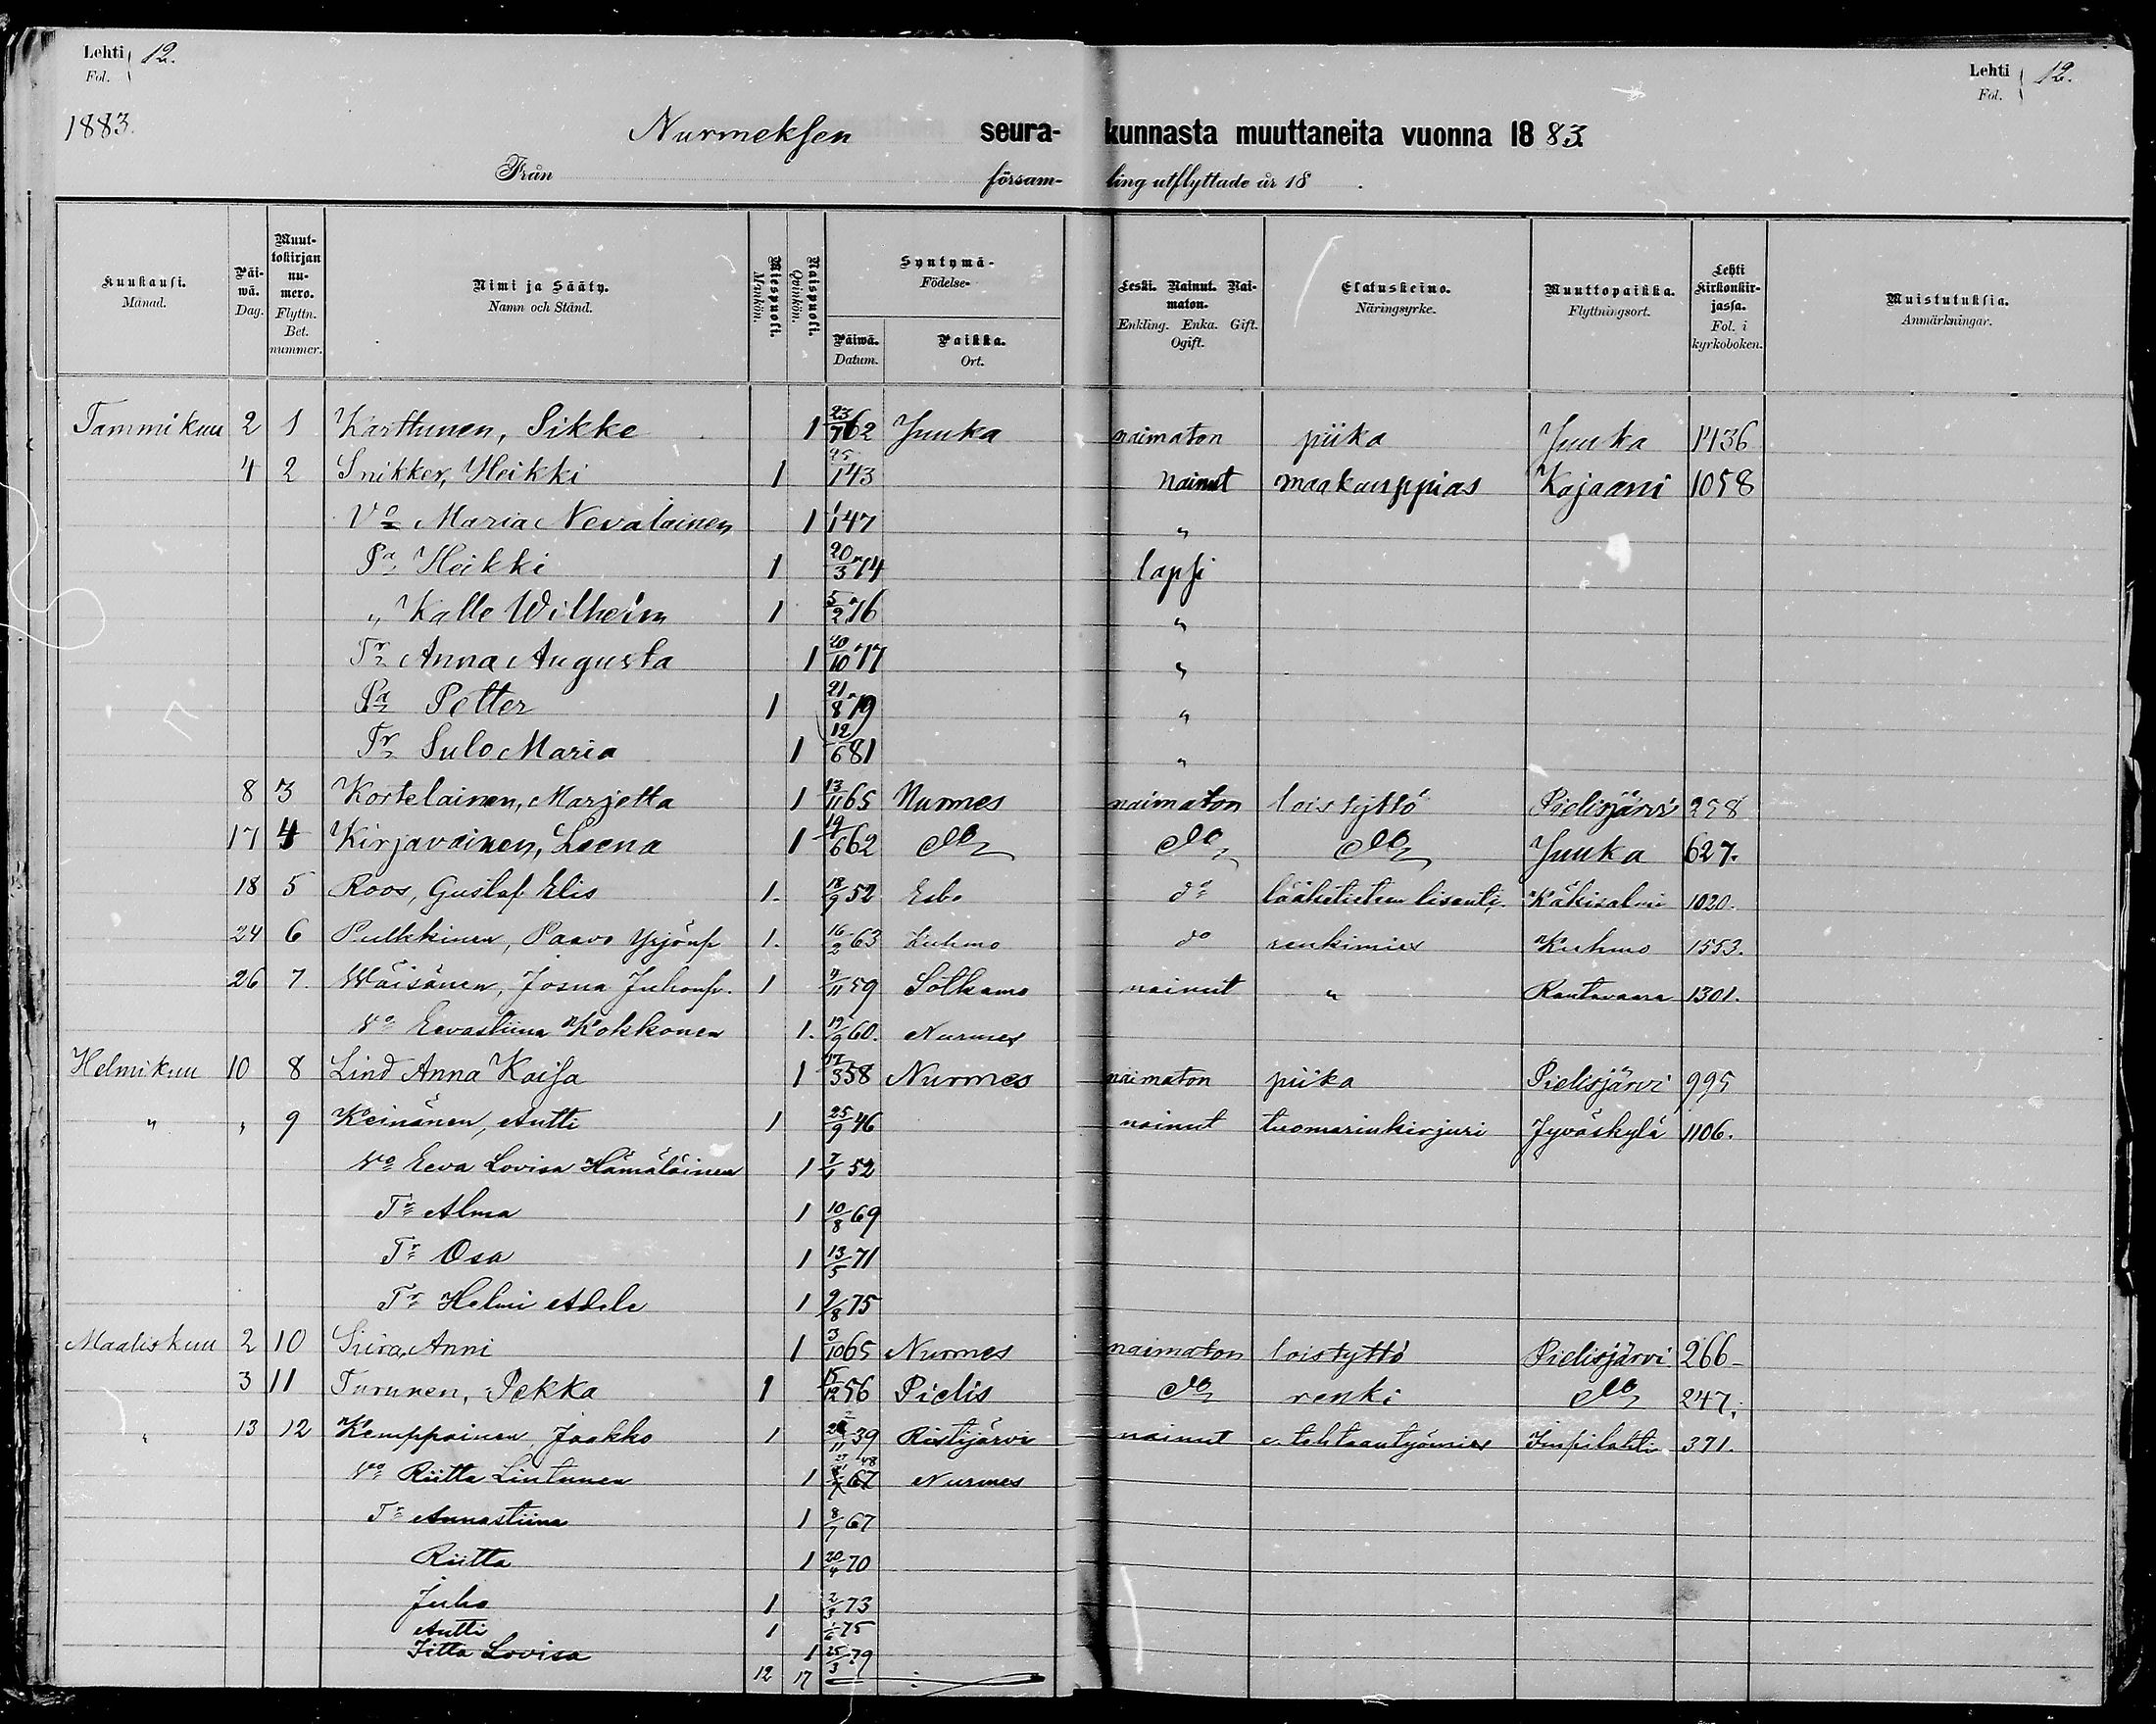 Lehti 12. Lehti 12.
Fol. Fol.
1883. Nurmeksen seura- kunnasta muuttaneita vuonna 1883.
Från försam- ling utflyttade år 18 .
Kuukausi. Månad. Päi-wä. Dag. Muut-tokirjan nu-mero. Flyttn. Bet. nummer. Nimi ja Sääty. Namn och Stånd. Miespuoli. Mankön. Naispuoli. Qvinkön. Syntymä- Födelse- Päiwä. Datum. Paikka. Ort. Leski. Nainut. Nai-maton. Enkling. Enka. Gift. Ogift. Elatuskeino. Näringsyrke. Muuttopaikka. Flyttningsort. Lehti Kirkonkir-jassa. Fol. i kyrkoboken. Muistutuksia. Anmärkningar.
Tammikuu 2 1 Karttunen, Sikke 1 23/7 62 Juuka naimaton piika Juuka 1436
4 2 Snikker, Heikki 1 25/1 43 nainut maakauppias Kajaani 1058
Vo Maria Nevalainen 1 1/1 47 "
Pa Heikki 1 20/3 74 lapsi
" Kalle Wilhelm 1 5/2 76 "
Tr Anna Augusta 1 20/10 77 "
Pa Petter 1 21/8 79 "
Tr Sulo Maria 1 12/6 81 "
8 3 Kortelainen, Marjetta 1 13/11 65 Nurmes naimaton loistyttö Pielisjärvi 258
17 4 Kirjavainen, Leena 1 19/6 62 do do do Juuka 627.
18 5 Roos, Gustaf Elis 1. 18/9 52 Esbo do lääketieteen lisenti. Käkisalmi 1020.
24 6 Pulkkinen, Paavo Yrjönp 1. 16/2 63 Kuhmo do renkimies Kuhmo 1553.
26 7. Wäisänen, Josua Juhonp. 1 4/11 59 Sotkamo nainut " Rautavaara 1301.
Vo Eevastiina Kokkonen 1. 19/9 60. Nurmes
Helmikuu 10 8 Lind Anna Kaisa 1 17/3 58 Nurmes naimaton piika Pielisjärvi 995
" " 9 Keinänen, Antti 1 25/9 46 nainut tuomarinkirjuri Jyväskylä 1106.
Vo Eeva Lovisa Hämäläinen 1 7/1 52
Tr Alma 1 10/8 69
Tr Osa 1 13/5 71
Tr Helmi Adele 1 9/8 75
Maaliskuu 2 10 Siira, Anni 1 3/10 65 Nurmes naimaton loistyttö Pielisjärvi 266
3 11 Turunen, Pekka 1 15/12 56 Pielis do renki do 247.
" 13 12 Kemppainen Jaakko 1 /11 39 Ristijärvi nainut e. tehtaantyömies Impilahti 371.
Vo Riitta Lintunen 1 48 67 Nurmes
Tr Annastiina 1 8/7 67
Riitta 1 20/4 70
Juho 1 2/3 73
Antti 1 1/6 75
Iitta Lovisa 1 25/3 79
12 17